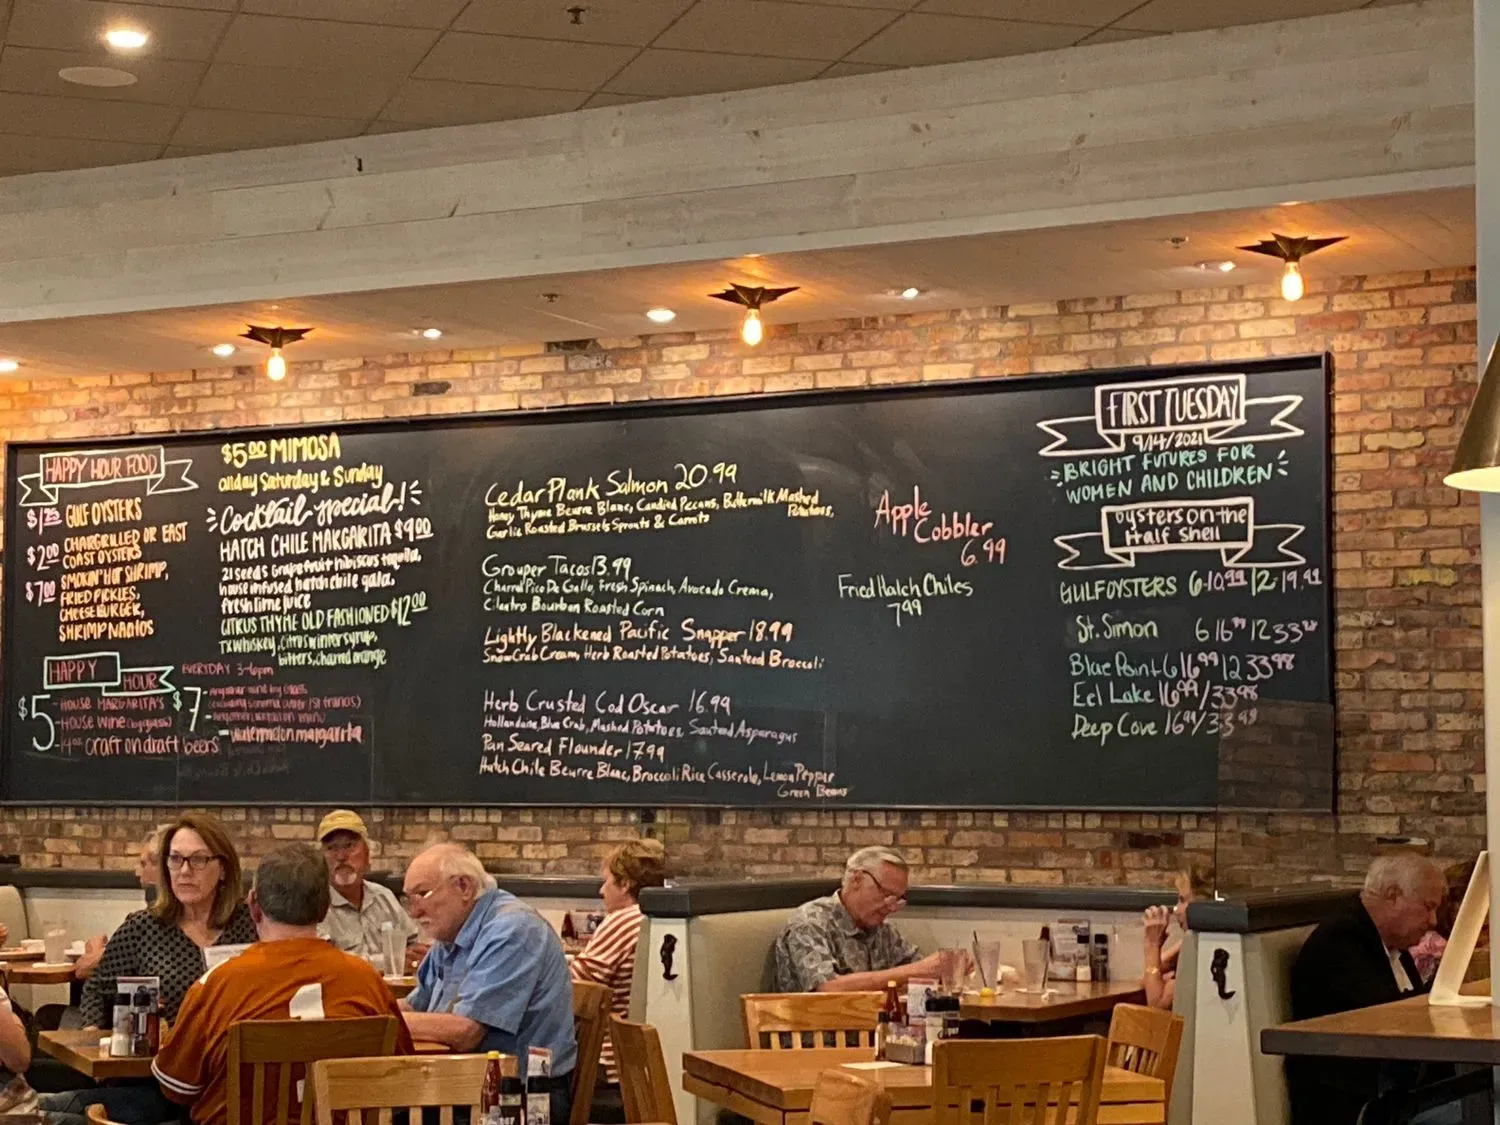 HAPPY HOUR FOOD
$1.25 GULF OYSTERS
$2.00 CHARGRILLED OR EAST
COAST OYSTERS
$7.00 SMOKIN' HOT SHRIMP,
FRIED PICKLES,
CHEESEBURGER,
SHRIMP NACHOS
HAPPY
HOUR
EVERYDAY 3-6pm
$5
-HOUSE MARGARITA'S
-HOUSE WINE
craft on draft beers
$7
-watermelon margarita
$5.00 MIMOSA
all day Saturday & Sunday
Cocktail special!
HATCH CHILE MARGARITA $9.00
21 seeds Grapefruit hibiscus tequila,
house infused hatch chile
fresh lime juice
CITRUS THYME OLD FASHIONED $12.00
TX Whiskey, citrus winter syrup,
bitters, charred orange
Cedar Plank Salmon 20.99
Honey Thyme Beurre Blanc, Candied Pecans, Buttermilk Mashed
Potatoes,
Garlic Roasted Brussels Sprouts & Carrots
Grouper Tacos 13.99
Charred Pico De Gallo, Fresh Spinach, Avocado Crema,
Cilantro Bourbon Roasted Corn
Lightly Blackened Pacific Snapper 18.99
Snow Crab Cream, Herb Roasted Potatoes, Sauteed Broccoli
Herb Crusted Cod Oscar 16.99
Hollandaise, Blue Crab, Mashed Potatoes, Sauteed Asparagus
Pan Seared Flounder 17.99
Hatch Chile Beurre Blanc, Broccoli Rice Casserole, Lemon Pepper
Green Beans
Apple
Cobbler
6.99
Fried Hatch Chiles
7.99
FIRST TUESDAY
9/14/2021
BRIGHT FUTURES FOR
WOMEN AND CHILDREN
Oysters on the
Half Shell
GULF OYSTERS 6-10.99 12-19.99
St. Simon 6 16.99 12 33.98
Blue Point 6 16.99 12 33.98
Eel Lake 16.99/33.98
Deep Cove 16.99/33.98